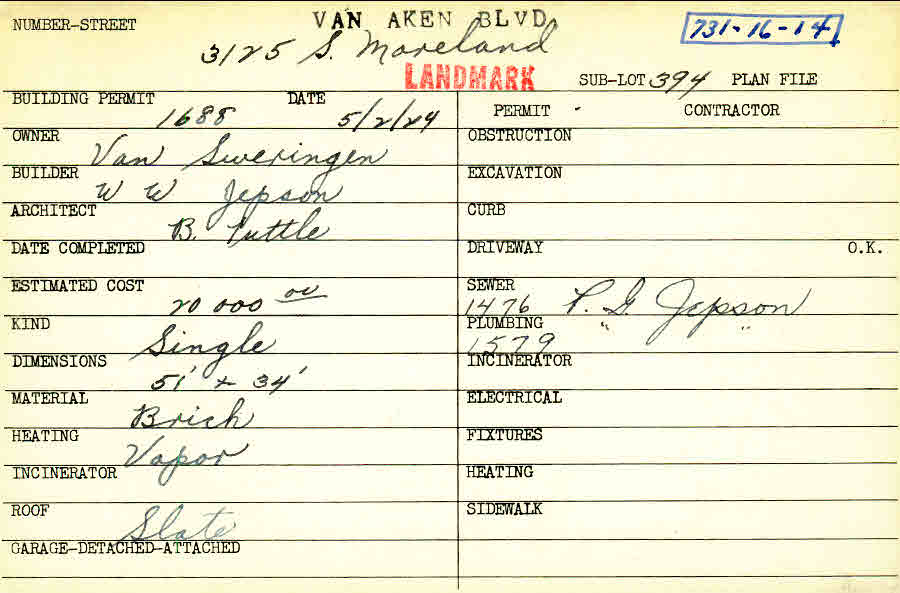 NUMBER-STREET VAN AKEN BLVD 731-16-14
3125 S. Moreland
LANDMARK SUB-LOT 394 PLAN FILE
BUILDING PERMIT DATE PERMIT CONTRACTOR
1688 5/2/24
OWNER OBSTRUCTION
Van Sweringen
BUILDER EXCAVATION
W W Jepson
ARCHITECT CURB
B. Tuttle
DATE COMPLETED DRIVEWAY O.K.
ESTIMATED COST SEWER
20 000 00 1476 P. G. Jepson
KIND PLUMBING " "
Single 1579
DIMENSIONS INCINERATOR
51' x 34'
MATERIAL ELECTRICAL
Brick
HEATING FIXTURES
Vapor
INCINERATOR HEATING
ROOF SIDEWALK
Slate
GARAGE-DETACHED-ATTACHED